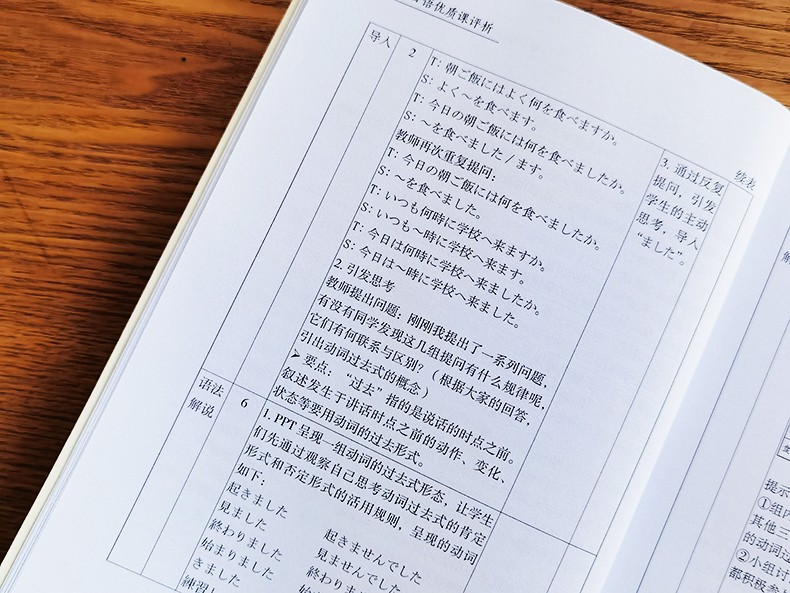 语优质课评析
续表
导入
2
T: 朝ご飯にはよく何を食べますか。
S: よく～を食べます。
T: 今日の朝ご飯には何を食べましたか。
S: ～を食べました／ます。
教师再次重复提问：
T: 今日の朝ご飯には何を食べましたか。
S: ～を食べました。
T: いつも何時に学校へ来ますか。
S: いつも～時に学校へ来ます。
T: 今日は何時に学校へ来ましたか。
S: 今日は～時に学校へ来ました。
2. 引发思考
教师提出问题：刚刚我提出了一系列问题，
有没有同学发现这几组提问有什么规律呢，
它们有何联系与区别？（根据大家的回答，
引出动词过去式的概念）
➤ 要点：“过去”指的是说话的时点之前。
叙述发生于讲话时点之前的动作、变化、
状态等要用动词的过去形式。
3. 通过反复
提问，引发
学生的主动
思考，导入
“ました”。
语法
解说
6
1. PPT 呈现一组动词的过去式形态，让学生
们先通过观察自己思考动词过去式的肯定
形式和否定形式的活用规则，呈现的动词
如下：
起きました
起きませんでした
見ました
見ませんでした
終わりました
終わりま
始まりました
きました
練習し
解
提示
①组内
其他三
的动词过
②小组讨
都积极参